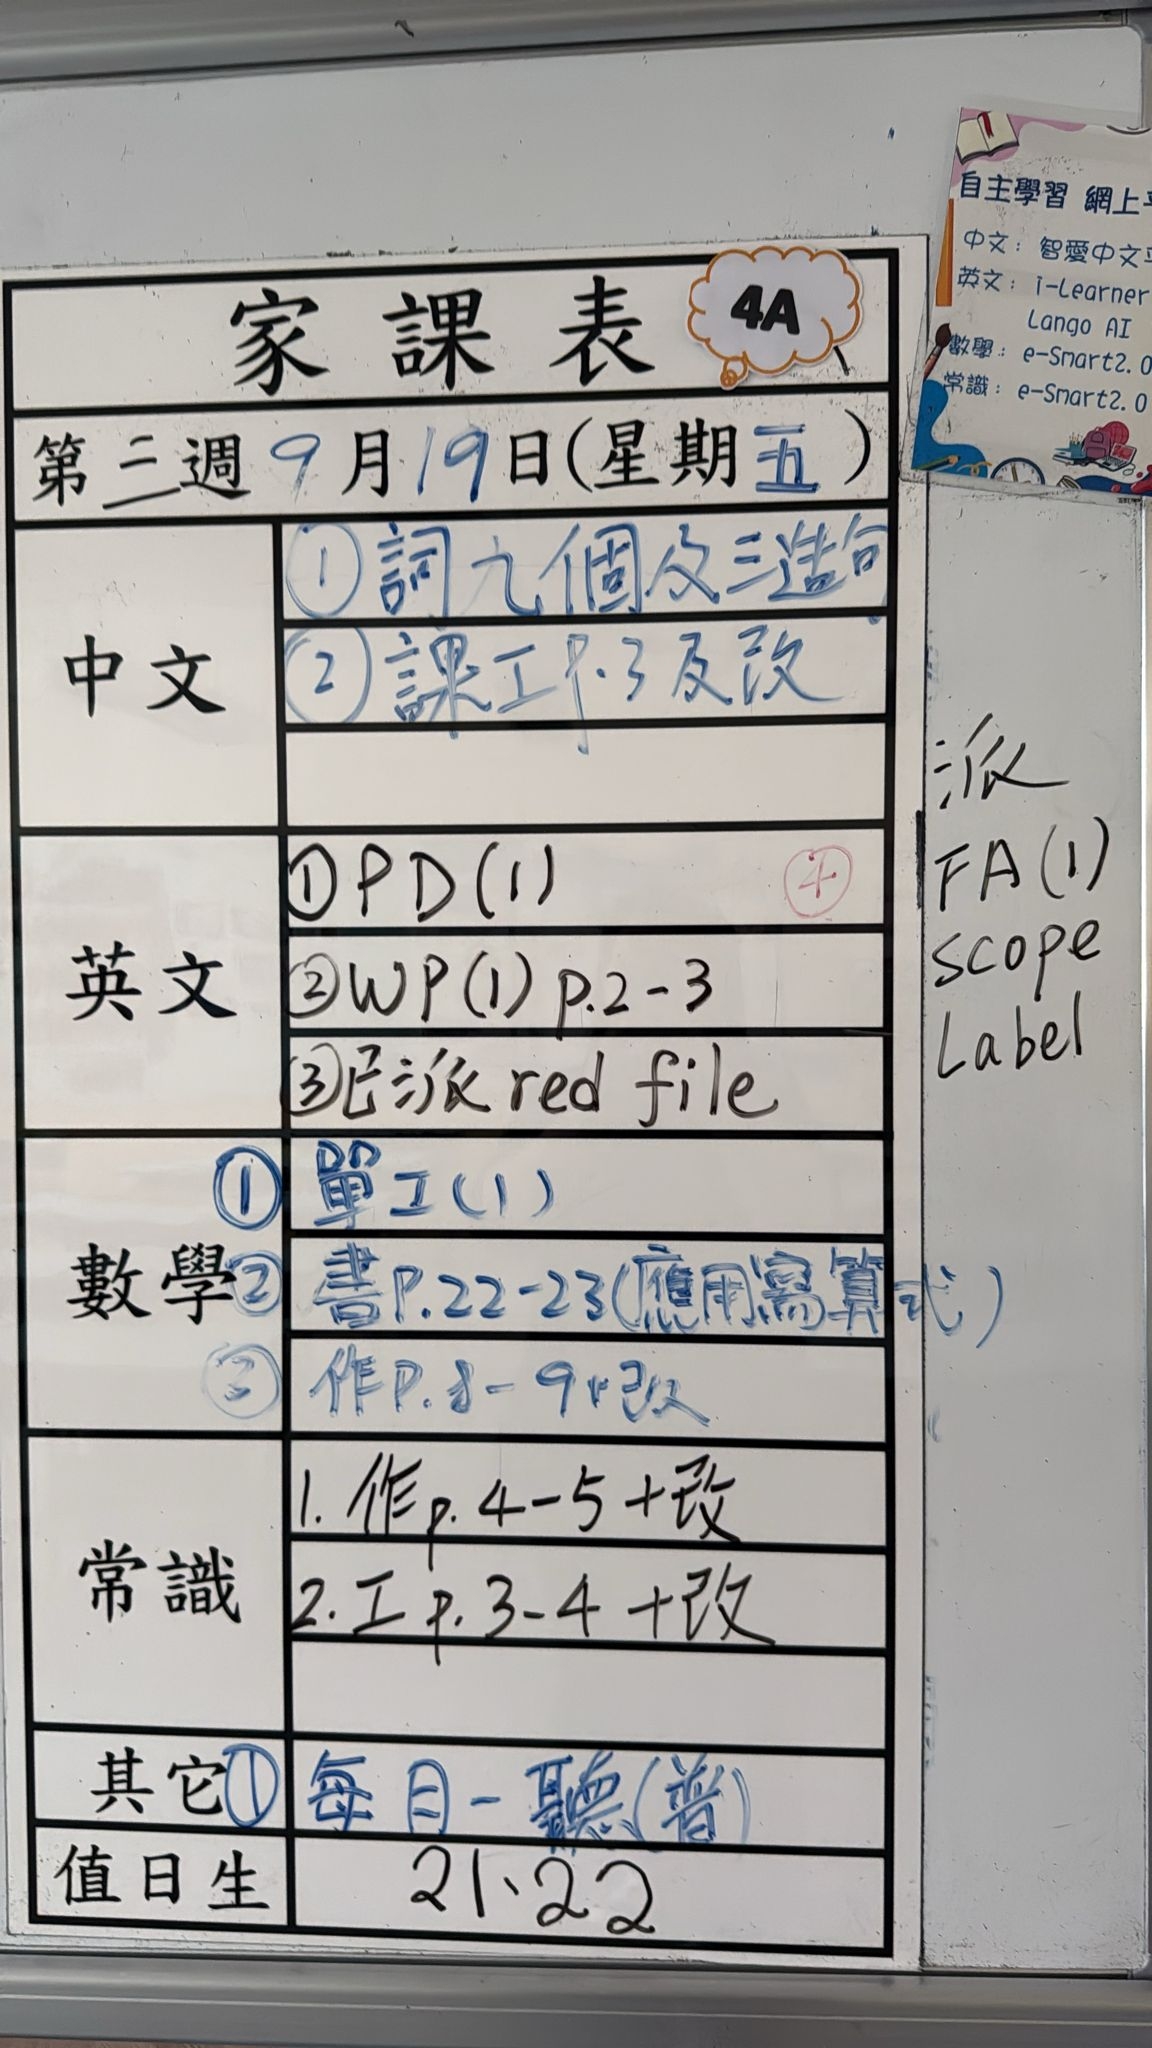 自主學習 網上
中文：智愛中文
英文：i-Learner
Lango AI
數學：e-Smart2.0
常識：e-Smart2.0
家課表
4A
第三週 9月19日(星期五)
中文
① 詞九個及三造句
② 課工P.3及改
英文
①PD(1)
④
②WP(1) p.2-3
③已派 red file
派
FA(1)
scope
Label
數學
① 單工(1)
② 書P.22-23(應用寫算式)
③ 作P.8-9+改
常識
1. 作p.4-5+改
2. 工p.3-4+改
其它
① 每日一聽(普)
值日生
21、22